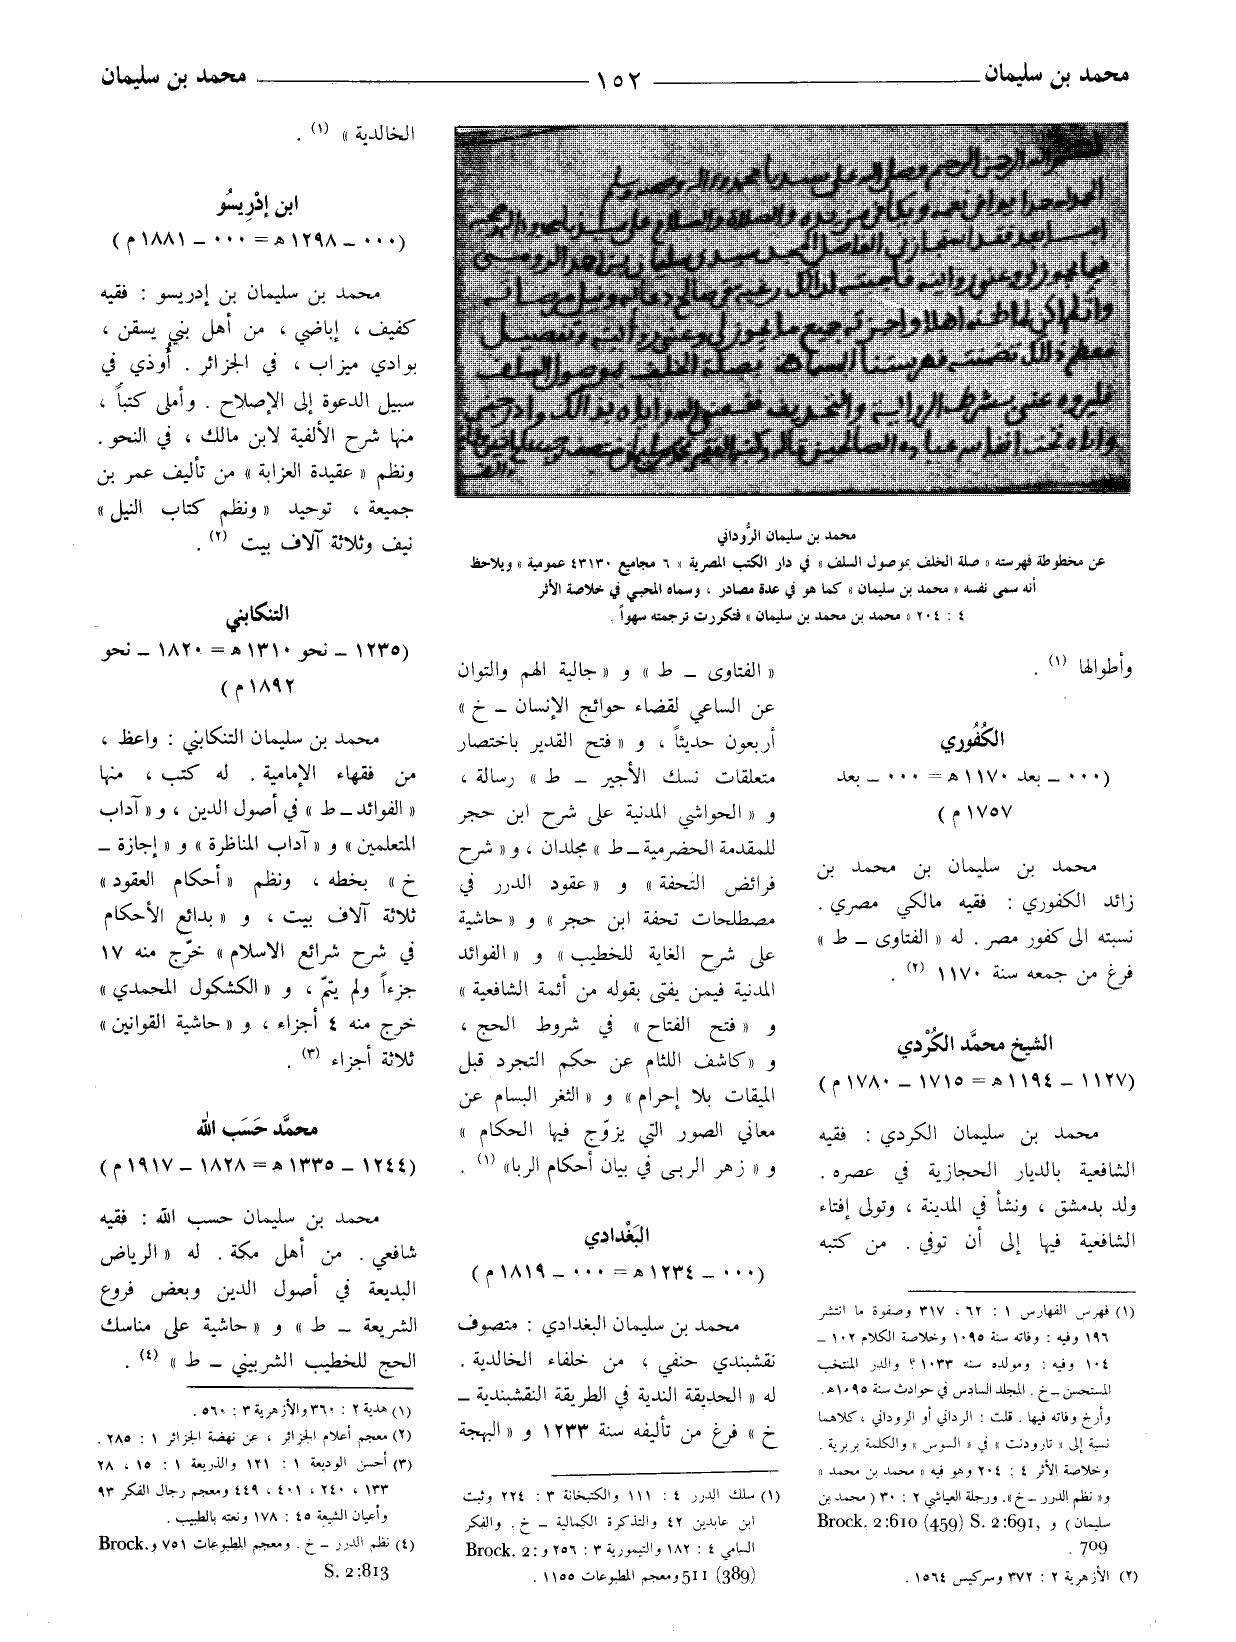 محمد بن سليمان ١٥٢ محمد بن سليمان
محمد بن سليمان الرُّوداني
عن مخطوطة فهرسته « صلة الخلف بموصول السلف » في دار الكتب المصرية « ٦ مجاميع ٤٣١٣٠ عمومية » ويلاحظ
أنه سمى نفسه « محمد بن سليمان » كما هو في عدة مصادر ، وسماه المحبي في خلاصة الأثر
٤ : ٢٠٤ « محمد بن محمد بن سليمان » فتكررت ترجمته سهواً .
وأطولها (١) .
الكُفُوري
(٠٠٠ ــ بعد ١١٧٠ هـ = ٠٠٠ ــ بعد
١٧٥٧ م )
محمد بن سليمان بن محمد بن
زائد الكفوري : فقيه مالكي مصري .
نسبته الى كفور مصر . له « الفتاوى ــ ط »
فرغ من جمعه سنة ١١٧٠ (٢) .
الشيخ محمَّد الكُرْدي
(١١٢٧ ــ ١١٩٤ هـ = ١٧١٥ ــ ١٧٨٠ م )
محمد بن سليمان الكردي : فقيه
الشافعية بالديار الحجازية في عصره .
ولد بدمشق ، ونشأ في المدينة ، وتولى إفتاء
الشافعية فيها إلى أن توفي . من كتبه
(١) فهرس الفهارس ١ : ٦٢ ، ٣١٧ وصفوة ما انتشر
١٩٦ وفيه : وفاته سنة ١٠٩٥ وخلاصة الكلام ١٠٢ ــ
١٠٤ وفيه : ومولده سنه ١٠٣٣ ؟ والدر المنتخب
المستحسن ــ خ . المجلد السادس في حوادث سنة ١٠٩٥هـ.
وأرخ وفاته فيها . قلت : الرداني أو الروداني ، كلاهما
نسبة إلى « تارودنت » في « السوس » والكلمة بربرية .
وخلاصة الأثر ٤ : ٢٠٤ وهو فيه « محمد بن محمد »
و« نظم الدرر ــ خ ». ورحلة العياشي ٢ : ٣٠ ( محمد بن
سليمان ) و Brock. 2:610 (459) S. 2:691,
709 .
(٢) الأزهرية ٢ : ٣٧٢ وسركيس ١٥٦٤ .
« الفتاوى ــ ط » و « جالية الهم والتوان
عن الساعي لقضاء حوائج الإنسان ــ خ »
أربعون حديثاً ، و « فتح القدير باختصار
متعلقات نسك الأجير ــ ط » رسالة ،
و « الحواشي المدنية على شرح ابن حجر
للمقدمة الحضرمية ــ ط » مجلدان ، و « شرح
فرائض التحفة » و « عقود الدرر في
مصطلحات تحفة ابن حجر » و « حاشية
على شرح الغاية للخطيب » و « الفوائد
المدنية فيمن يفتى بقوله من أئمة الشافعية »
و « فتح الفتاح » في شروط الحج ،
و « كاشف اللثام عن حكم التجرد قبل
الميقات بلا إحرام » و « الثغر البسام عن
معاني الصور التي يزوّج فيها الحكام »
و « زهر الربى في بيان أحكام الربا» (١) .
البَغْدادي
(٠٠٠ ــ ١٢٣٤ هـ = ٠٠٠ ــ ١٨١٩ م )
محمد بن سليمان البغدادي : متصوف
نقشبندي حنفي ، من خلفاء الخالدية .
له « الحديقة الندية في الطريقة النقشبندية ــ
خ » فرغ من تأليفه سنة ١٢٣٣ و « البهجة
(١) سلك الدرر ٤ : ١١١ والكتبخانة ٣ : ٢٢٤ وثبت
ابن عابدين ٤٢ والتذكرة الكمالية ــ خ . والفكر
السامي ٤ : ١٨٢ والتيمورية ٣ : ٢٥٦ و Brock. 2:
511 (389) ومعجم المطبوعات ١١٥٥ .
الخالدية » (١) .
ابن إدْرِيسُو
(٠٠٠ ــ ١٢٩٨ هـ = ٠٠٠ ــ ١٨٨١ م )
محمد بن سليمان بن إدريسو : فقيه
كفيف ، إباضي ، من أهل بني يسقن ،
بوادي ميزاب ، في الجزائر . أُوذي في
سبيل الدعوة إلى الإصلاح . وأملى كتباً ،
منها شرح الألفية لابن مالك ، في النحو .
ونظم « عقيدة العزابة » من تأليف عمر بن
جميعة ، توحيد « ونظم كتاب النيل »
نيف وثلاثة آلاف بيت (٢) .
التنكابني
(١٢٣٥ ــ نحو ١٣١٠ هـ = ١٨٢٠ ــ نحو
١٨٩٢ م )
محمد بن سليمان التنكابني : واعظ ،
من فقهاء الإمامية . له كتب ، منها
« الفوائد ــ ط » في أصول الدين ، و « آداب
المتعلمين » و « آداب المناظرة » و « إجازة ــ
خ » بخطه ، ونظم « أحكام العقود »
ثلاثة آلاف بيت ، و « بدائع الأحكام
في شرح شرائع الاسلام » خرّج منه ١٧
جزءاً ولم يتمّ ، و « الكشكول المحمدي »
خرج منه ٤ أجزاء ، و « حاشية القوانين »
ثلاثة أجزاء (٣) .
محمَّد حَسَب الله
(١٢٤٤ ــ ١٣٣٥ هـ = ١٨٢٨ ــ ١٩١٧ م )
محمد بن سليمان حسب الله : فقيه
شافعي . من أهل مكة . له « الرياض
البديعة في أصول الدين وبعض فروع
الشريعة ــ ط » و « حاشية على مناسك
الحج للخطيب الشربيني ــ ط » (٤) .
(١) هدية ٢ : ٣٦٠ والأزهرية ٣ : ٥٦٠ .
(٢) معجم أعلام الجزائر ، عن نهضة الجزائر ١ : ٢٨٥ .
(٣) أحسن الوديعة ١ : ١٢١ والذريعة ١ : ١٥ ، ٢٨
١٣٣ ، ٢٤٠ ، ٤٠١ ، ٤٤٩ ومعجم رجال الفكر ٩٣
وأعيان الشيعة ٤٥ : ١٧٨ ونعته بالطبيب .
(٤) نظم الدرر ــ خ . ومعجم المطبوعات ٧٥١ و Brock.
S. 2:813